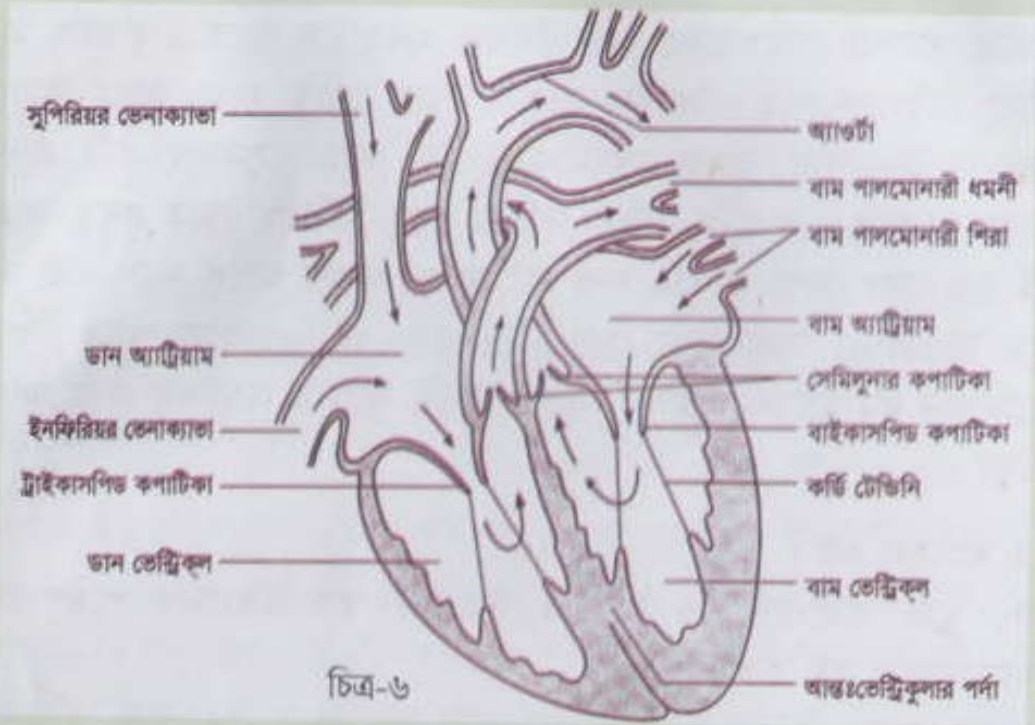 সুপিরিয়র ভেনাক্যাভা
ডান অ্যাট্রিয়াম
ইনফিরিয়র ভেনাক্যাভা
ট্রাইকাসপিড কপাটিকা
ডান ভেন্ট্রিক্‌ল
অ্যাওর্টা
বাম পালমোনারী ধমনী
বাম পালমোনারী শিরা
বাম অ্যাট্রিয়াম
সেমিলুনার কপাটিকা
বাইকাসপিড কপাটিকা
কর্ডি টেন্ডিনি
বাম ভেন্ট্রিক্‌ল
আন্তঃভেন্ট্রিকুলার পর্দা
চিত্র-৬